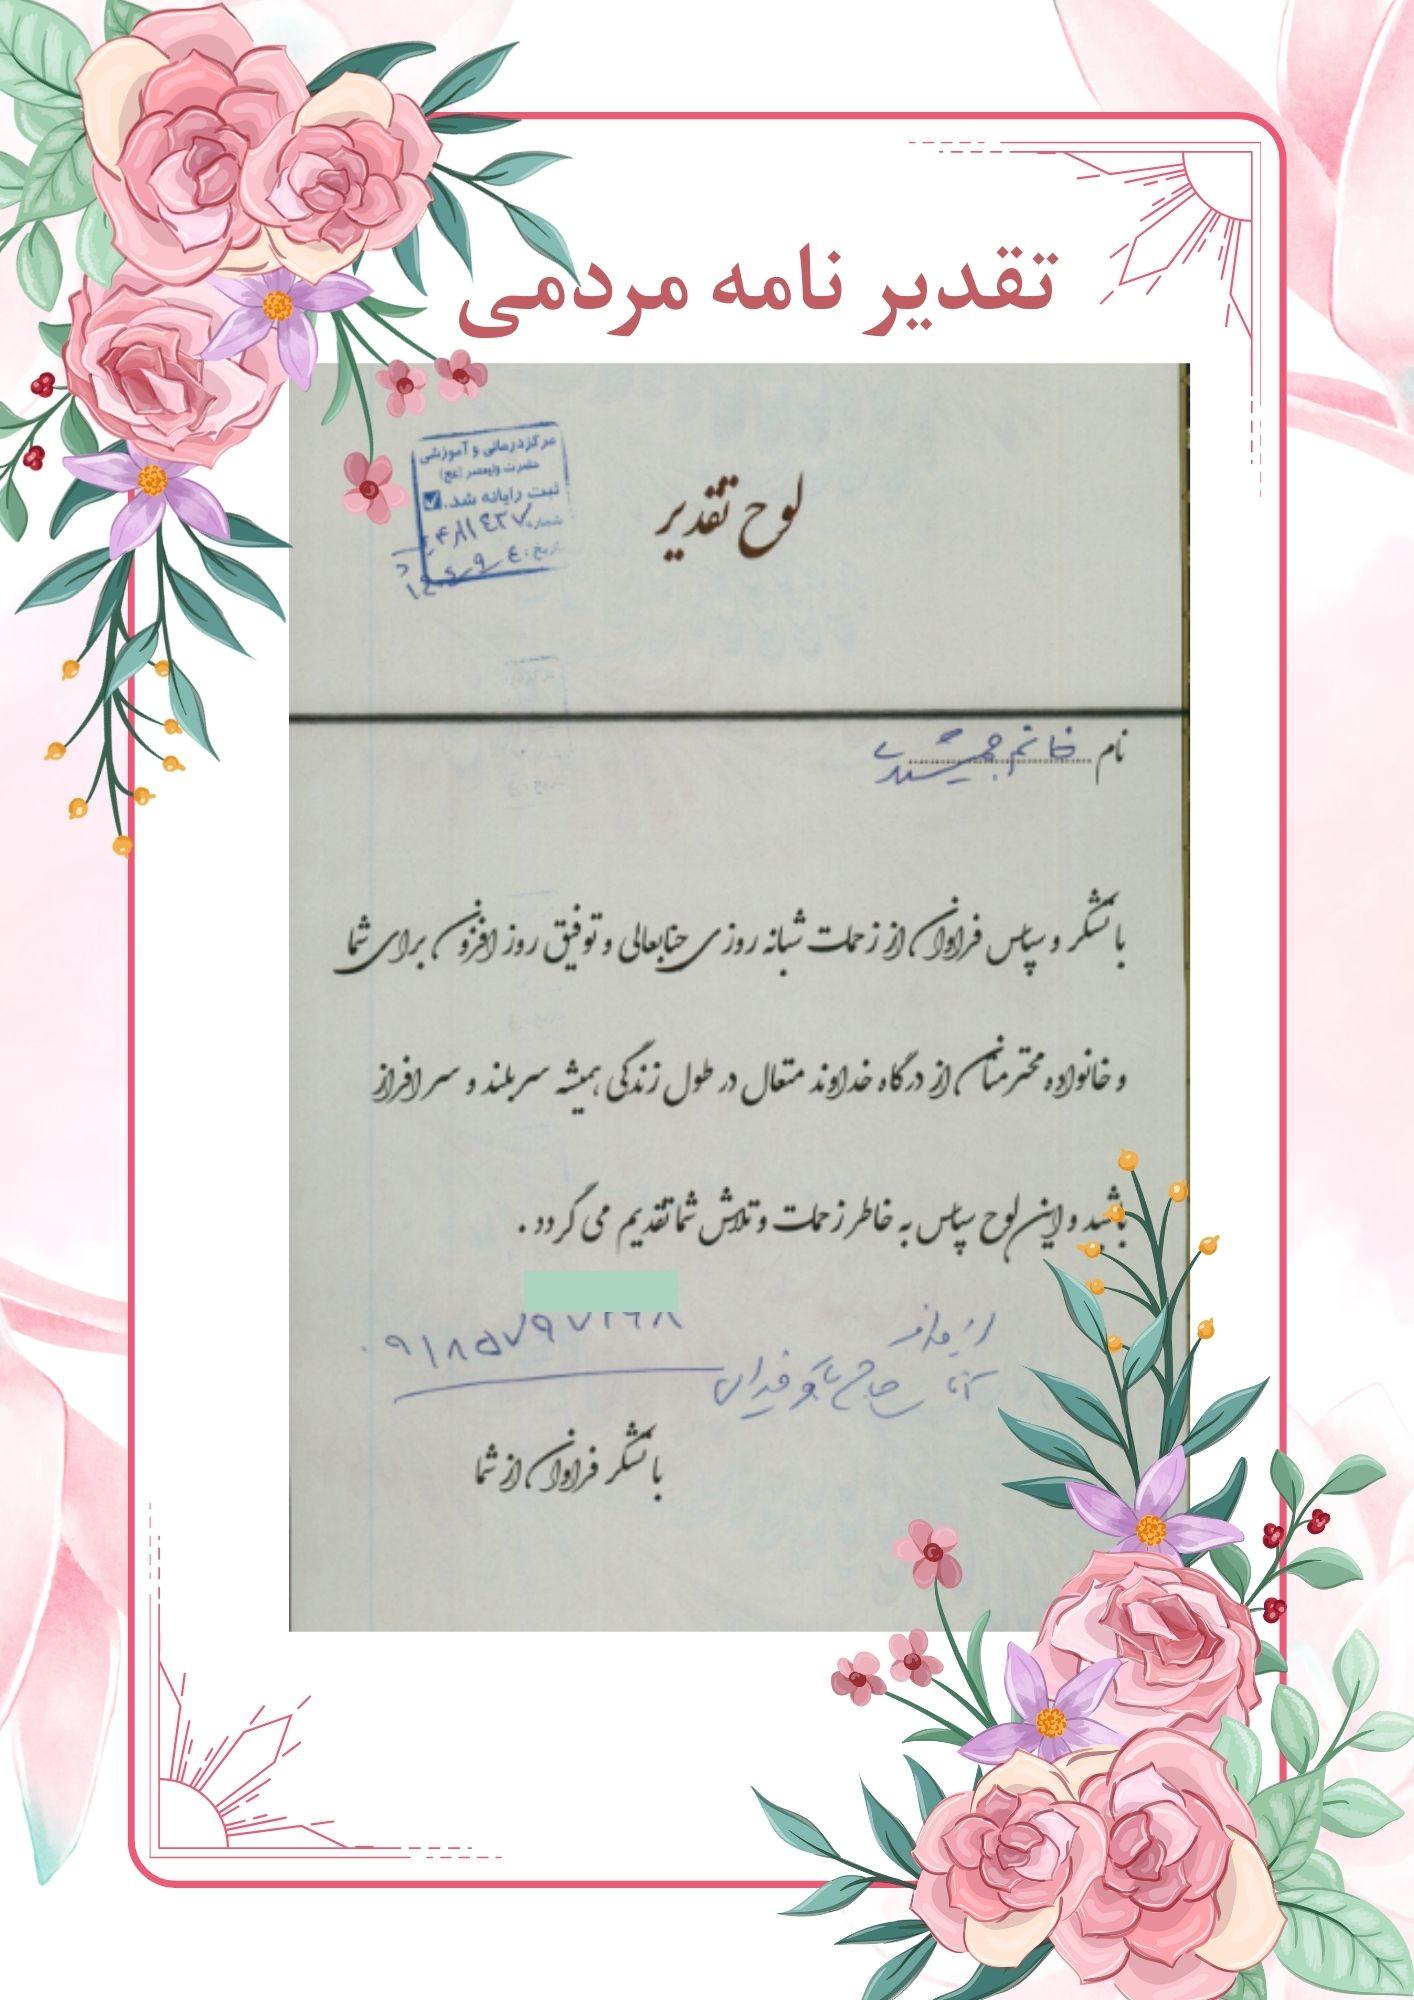 تقدیر نامه مردمی
مرکز درمانی و آموزشی
حضرت ولیعصر (عج)
ثبت رایانه شد.
شماره
تاریخ:
لوح تقدیر
نام خانم جمشیدی
با تشکر و سپاس فراوان از زحمات شبانه روزی جنابعالی و توفیق روز افزون برای شما
و خانواده محترمتان از درگاه خداوند متعال در طول زندگی همیشه سربلند و سرافراز
باشید و این لوح سپاس به خاطر زحمات و تلاش شما تقدیم می گردد .
از طرف
با تشکر فراوان از شما